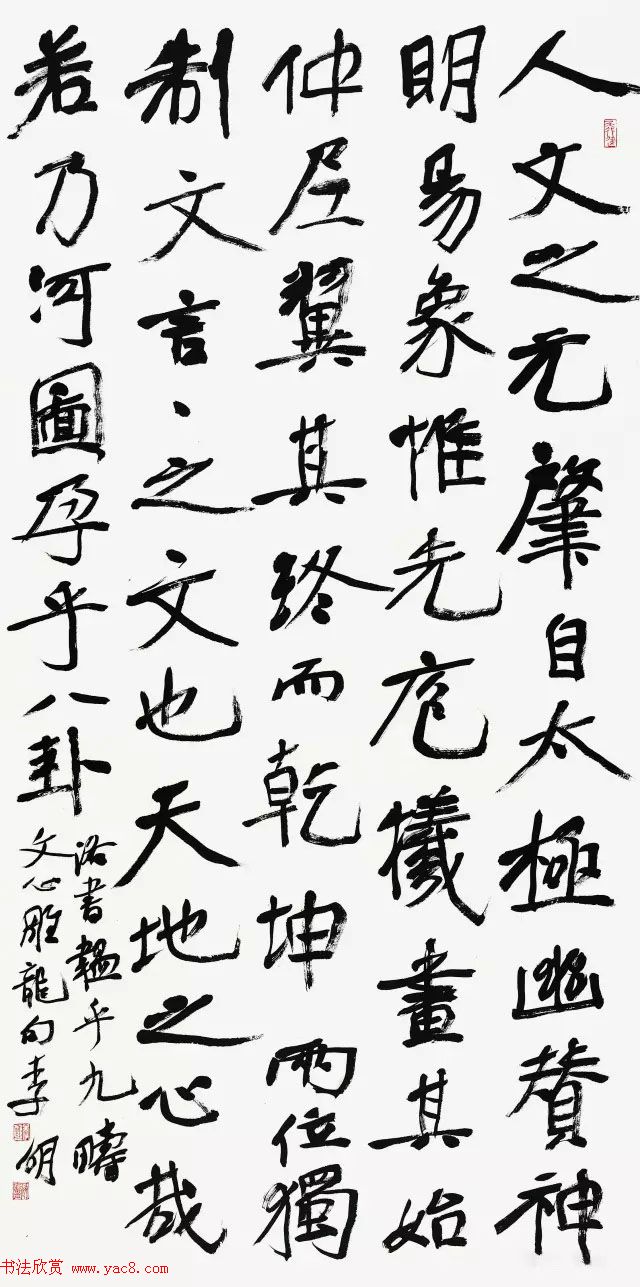 人文之元肇自太極幽贊神
明易象惟先庖犧畫其始
仲尼翼其終而乾坤兩位獨
制文言、之文也天地之心哉
若乃河圖孕乎八卦
洛書韞乎九疇
文心雕龍句李明
书法欣赏 www.yac8.com